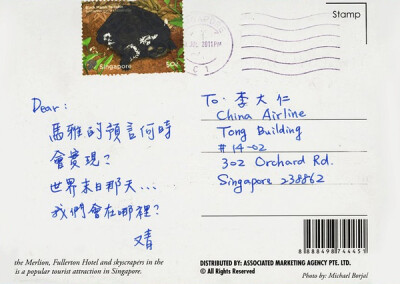 Singapore
50c
Stamp
Dear:
馬雅的預言何時
會實現?
世界末日那天...
我們會在哪裡?
又青
To: 李大仁
China Airline
Tong Building
#14-02
302 Orchard Rd.
Singapore 238862
8 888498 744451
the Merlion, Fullerton Hotel and skyscrapers in the
is a popular tourist attraction in Singapore.
DISTRIBUTED BY: ASSOCIATED MARKETING AGENCY PTE. LTD.
© All Rights Reserved
Photo by: Michael Borjal